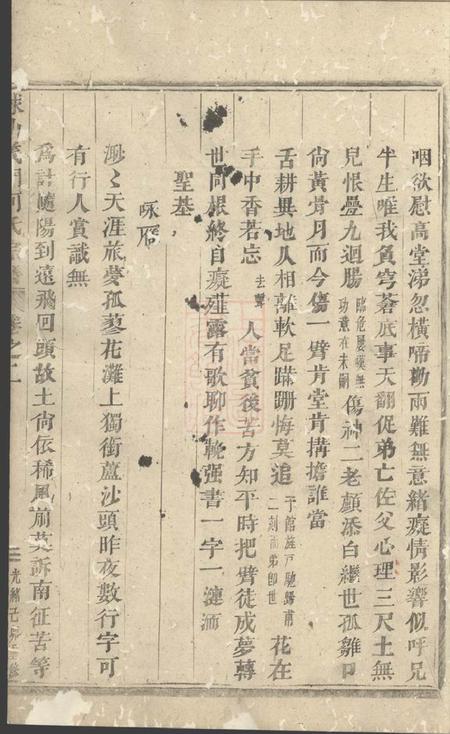 咽欲慰高堂涕忽橫啼鳩雨難無意緒癡情影響似呼兄
半生唯我負穹蒼底事天翻促弟亡佐父心理三尺土無
兒恨疊九迴腸臨危屢嘆無功意在未嗣傷神二老顏添白繼世孤雛口
尙黃昔月而今傷一臂肯堂肯搆擔誰當
舌耕異地人相離軟足蹣跚悔莫追于館旌戸馳歸甫二刻而弟卽世花在
手中香若忘去聲人當貧後苦方知平時把臂徒成夢轉
世同根終自癡薤露有歌聊作輓强書一字一漣洏
聖基
咏雁
渺々天涯旅夢孤蓼花灘上獨銜蘆沙頭昨夜數行字可
有行人賞識無
爲計隨陽到遠飛回頭故土尙依稀風前莫訴南征苦等
氏宗譜 卷之二
三 光緒己